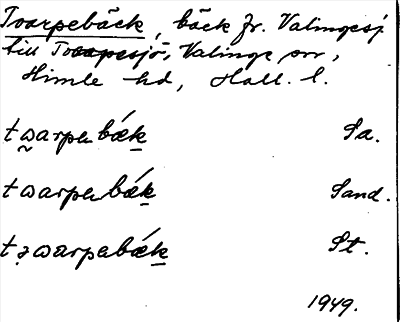 Tvarpebäck, bäck fr. Valingesj
till Tvarpesjö, Valinge sn,
Himle hd, Hall. l.
twarpabǽk Sa.
twarpabǽk Sand.
təwarpabǽk St.
1949.